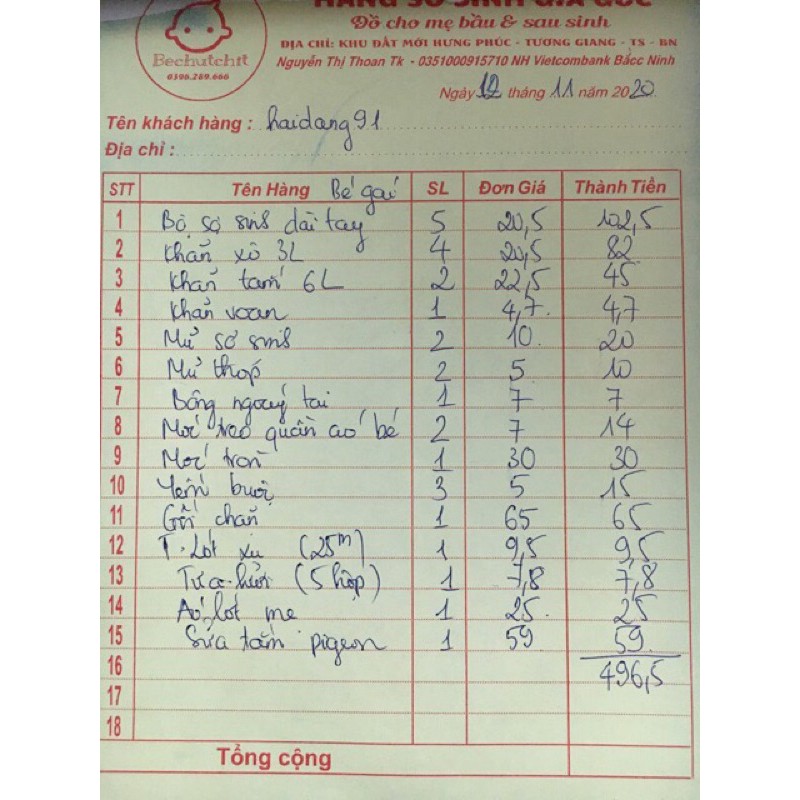 HÀNG SƠ SINH GIÁ GỐC
Đồ cho mẹ bầu & sau sinh
ĐỊA CHỈ: KHU ĐẤT MỚI HƯNG PHÚC - TƯƠNG GIANG - TS - BN
Bechutchit
0396.289.666
Nguyễn Thị Thoan Tk - 0351000915710 NH Vietcombank Bắcc Ninh
Ngày 12 tháng 11 năm 2020
Tên khách hàng : haidang91
Địa chỉ :
STT Tên Hàng Bé gái SL Đơn Giá Thành Tiền
1 Bộ sơ sinh dài tay 5 20,5 102,5
2 Khăn xô 3L 4 20,5 82
3 Khăn tắm 6L 2 22,5 45
4 Khăn voan 1 4,7 4,7
5 Mũ sơ sinh 2 10 20
6 Mũ thóp 2 5 10
7 Bông ngoáy tai 1 7 7
8 Móc treo quần áo bé 2 7 14
9 Móc tròn 1 30 30
10 Yếm bướm 3 5 15
11 Gối chăn 1 65 65
12 T. lót xu (25m) 1 9,5 9,5
13 (5 hộp) 1 7,8 7,8
14 Áo lót mẹ 1 25 25
15 Sữa tắm pigeon 1 59 59
16 496,5
17
18
Tổng cộng